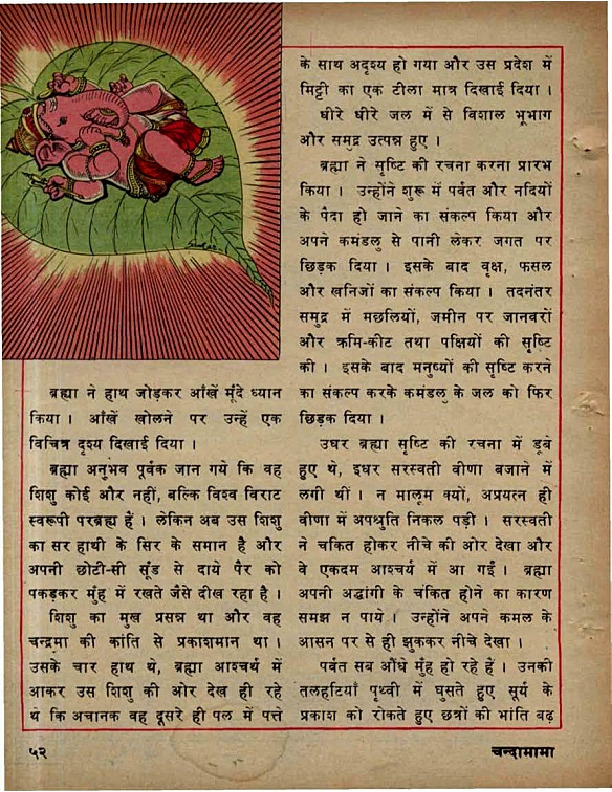 ब्रह्मा ने हाथ जोड़कर आँखें मूंदे ध्यान
किया । आँखें खोलने पर उन्हें एक
विचित्र दृश्य दिखाई दिया ।
ब्रह्मा अनुभव पूर्वक जान गये कि वह
शिशु कोई और नहीं, बल्कि विश्व विराट
स्वरूपी परब्रह्म हैं । लेकिन अब उस शिशु
का सर हाथी के सिर के समान है और
अपनी छोटी-सी सूंड से दाये पैर को
पकड़कर मुँह में रखते जैसे दीख रहा है ।
शिशु का मुख प्रसन्न था और वह
चन्द्रमा की कांति से प्रकाशमान था ।
उसके चार हाथ थे, ब्रह्मा आश्चर्य में
आकर उस शिशु की ओर देख ही रहे
थे कि अचानक वह दूसरे ही पल में पत्ते
के साथ अदृश्य हो गया और उस प्रदेश में
मिट्टी का एक टीला मात्र दिखाई दिया ।
धीरे धीरे जल में से विशाल भूभाग
और समुद्र उत्पन्न हुए ।
ब्रह्मा ने सृष्टि की रचना करना प्रारभ
किया । उन्होंने शुरू में पर्वत और नदियों
के पैदा हो जाने का संकल्प किया और
अपने कमंडलु से पानी लेकर जगत पर
छिड़क दिया । इसके बाद वृक्ष, फसल
और खनिजों का संकल्प किया । तदनंतर
समुद्र में मछलियों, जमीन पर जानवरों
और क्रमि-कीट तथा पक्षियों की सृष्टि
की । इसके बाद मनुष्यों की सृष्टि करने
का संकल्प करके कमंडलु के जल को फिर
छिड़क दिया ।
उधर ब्रह्मा सृष्टि की रचना में डूबे
हुए थे, इधर सरस्वती वीणा बजाने में
लगी थीं । न मालूम क्यों, अप्रयत्न ही
वीणा में अपश्रुति निकल पड़ी । सरस्वती
ने चकित होकर नीचे की ओर देखा और
वे एकदम आश्चर्य में आ गईं । ब्रह्मा
अपनी अर्द्धांगी के चकित होने का कारण
समझ न पाये । उन्होंने अपने कमल के
आसन पर से ही झुककर नीचे देखा ।
पर्वत सब औंधे मुँह हो रहे हैं । उनकी
तलहटियाँ पृथ्वी में घुसते हुए सूर्य के
प्रकाश को रोकते हुए छत्रों की भांति बढ़
५२
चन्दामामा